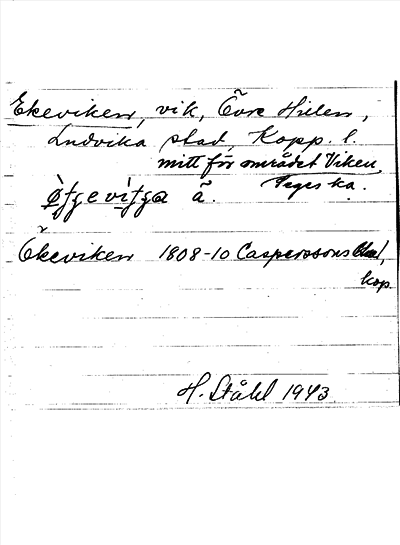 Ekeviken, vik, Övre Hillen,
Ludvika stad, Kopp. l.
mitt för området Viken
Tegeska.
ā.
Ökeviken 1808-10 Casperssons
kop.
H. Ståhl 1943